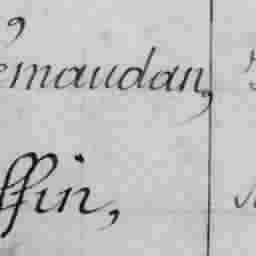 emaudan,
ffin,